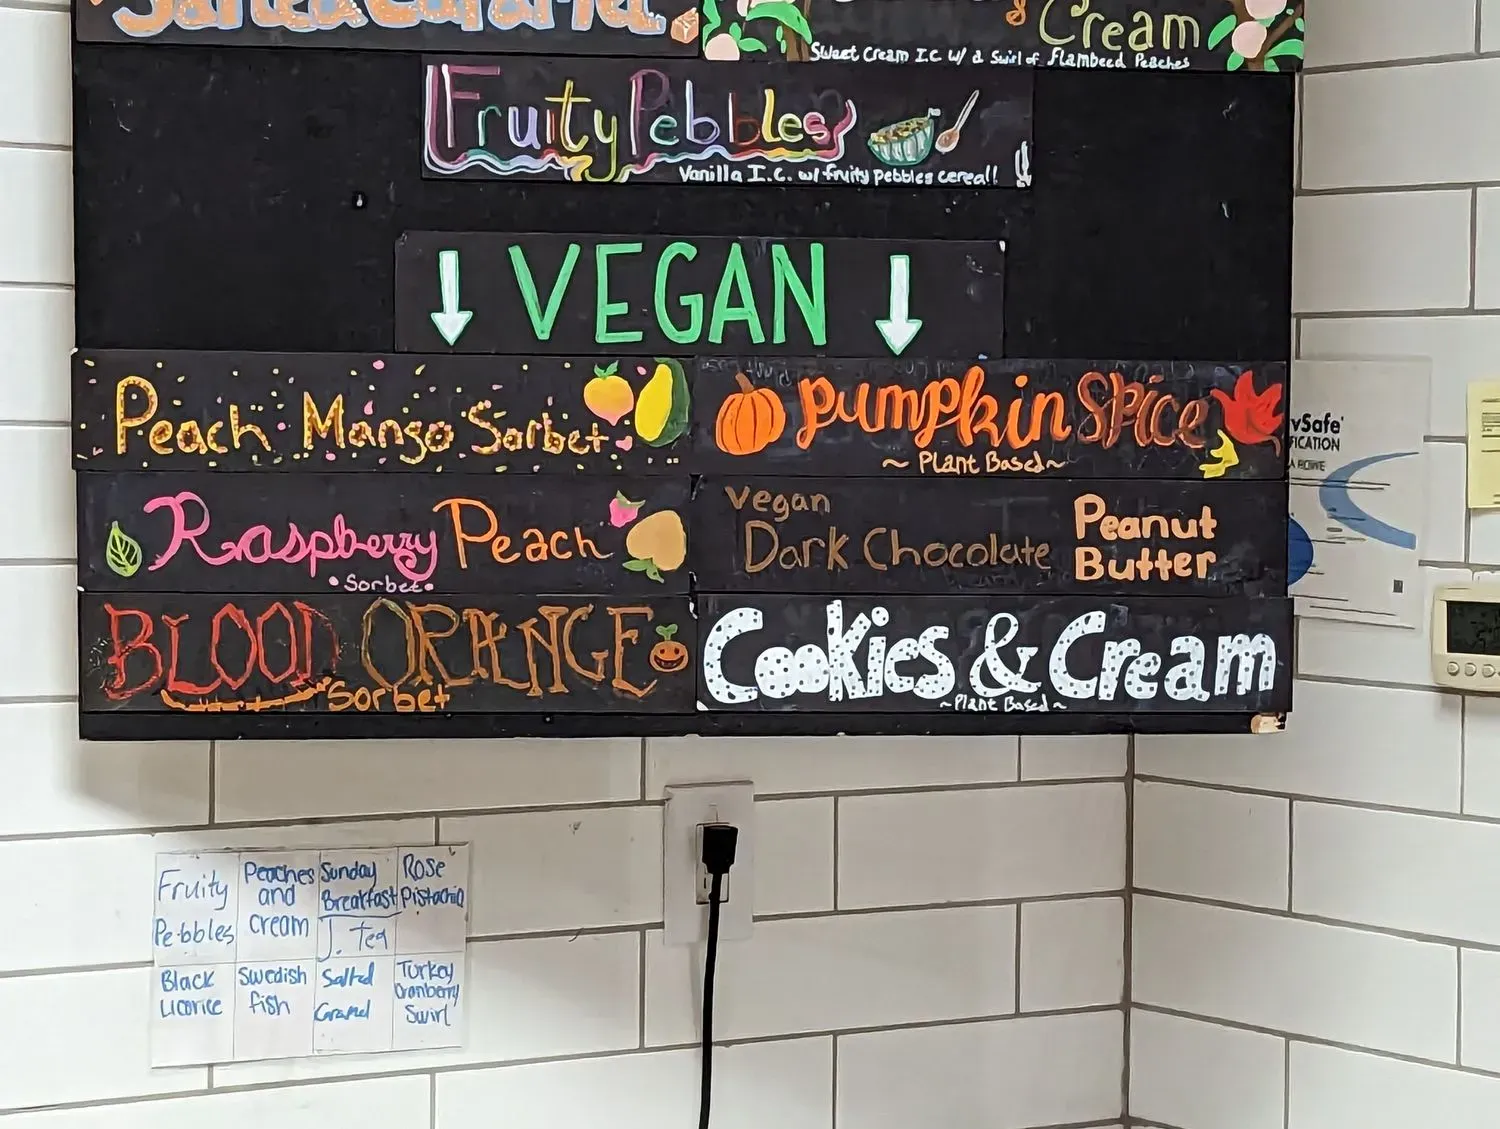 Salted Caramel
Cream
Sweet Cream I.C W/ a Swirl of Flambeed Peaches
Fruity Pebbles
Vanilla I.C. w/ fruity pebbles cereal!
VEGAN
Peach Mango Sorbet
Pumpkin Spice
~ Plant Based ~
Raspberry Peach
• Sorbet •
Vegan
Dark Chocolate
Peanut
Butter
BLOOD ORANGE
Sorbet
Cookies & Cream
~ Plant Based ~
vSafe
FICATION
Fruity
Pebbles
Peaches
and
cream
Sunday
Breakfast
J. Tea
Rose
Pistachio
Black
Licorice
Swedish
fish
Salted
Caramel
Turkey
Cranberry
Swirl